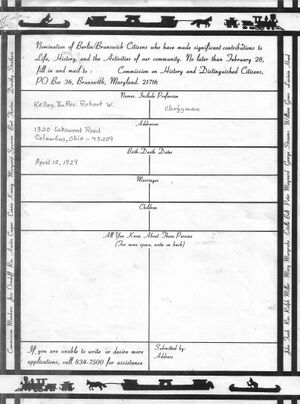 Nomination of Berlin/Brunswick Citizens who have made significant contributions to
Life, History, and the Activities of our community. No later than February 28,
fill in and mail to : Commission on History and Distinguished Citizens,
PO Box 36, Brunswick, Maryland. 21716
Names, Include Profession
Kelley, The Rev. Robert W.
Clergyman
Addresses
1320 Lakewood Road
Columbus, Ohio - 43209
Birth-Death Dates
April 12, 1929
Marriages
Children
All You Know About These Persons
(For more space, write on back)
If you are unable to write or desire more
applications, call 834-7500 for assistance
Submitted by:
Address
Commission Members: Jess Orndoff Rev. Austin Cooper Connie Koenig Margaret